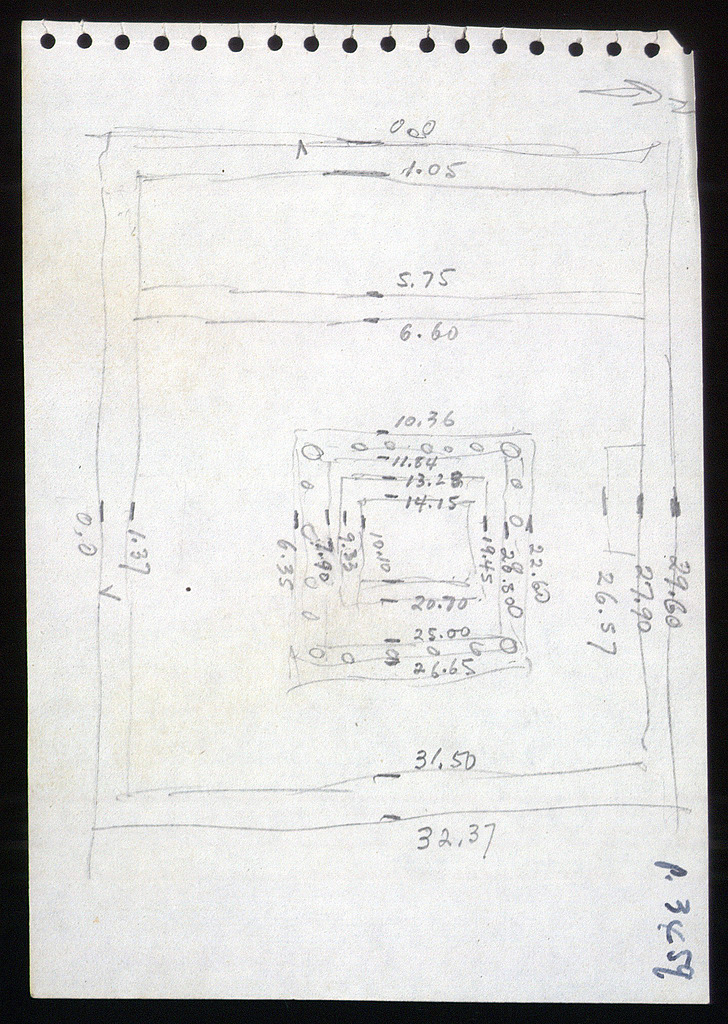 N
0.0
1.05
5.75
6.60
10.36
11.84
13.28
14.15
0.0
1.37
6.35
7.90
9.33
10.10
19.45
22.60
26.57
27.90
29.60
20.70
25.00
26.65
31.50
32.37